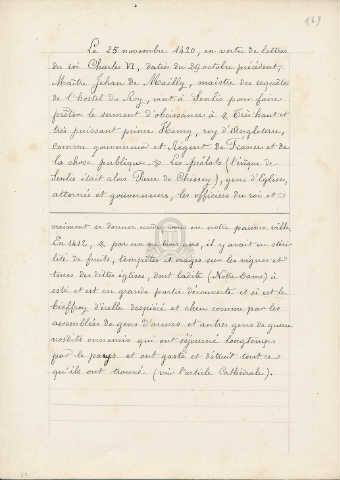 169
Le 25 novembre 1420, en vertu de lettres
du roi Charles VI, datées du 29 octobre précédent,
Maître Jehan de Mailly, maistre des requêtes
de l'hostel du Roy, vint à Senlis pour faire
prêter le serment d'obéissance à « Très haut et
très puissant prince Henry, roy d'Angleterre,
comme gouverneur et Régent de France et de
la chose publique ». Les prélats (l'évêque de
Senlis était alors Pierre de Chissey), gens d'Eglise,
attorné et gouverneurs, les officiers du roi et
vinrent se donner rendez-vous en notre pauvre ville.
En 1412, « par un ou deux ans, il y avait eu stéri
lité de fruits, tempêtes et orages sur les vignes et
terres des dites églises, dont ladite (Notre-Dame) a
esté et est en grande partie découverte et si est le
beffroy d'icelle despiécé et cheu comme par les
assemblées de gens d'armes et autres gens de guerre
nosdits ennemis qui ont séjourné longtemps
par le pays et ont gasté et détruit tout ce
qu'ils ont trouvé. (voir l'article Cathédrale).